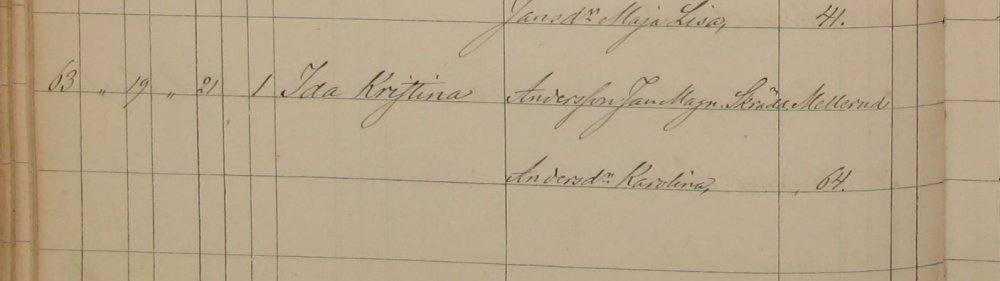 Jansdr Maja Lisa, 41.
63 " 19 " 21 1 Ida Kristina Andersson Jan Magn. Skrädd. Mellerud
Andersdr Karolina, 64.